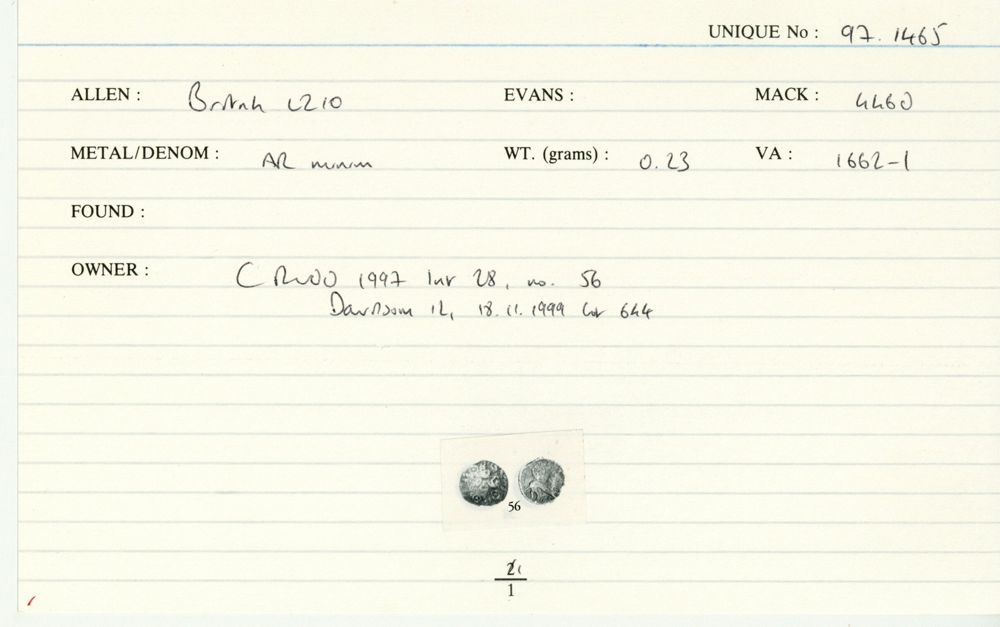 UNIQUE No : 97. 1465
ALLEN : British L210 EVANS : MACK : 446D
METAL/DENOM : AR minim WT. (grams) : 0.23 VA : 1662-1
FOUND :
OWNER : C Rudd 1997 list 28, no. 56
Davisson 12, 18.11.1999 lot 644
56
1